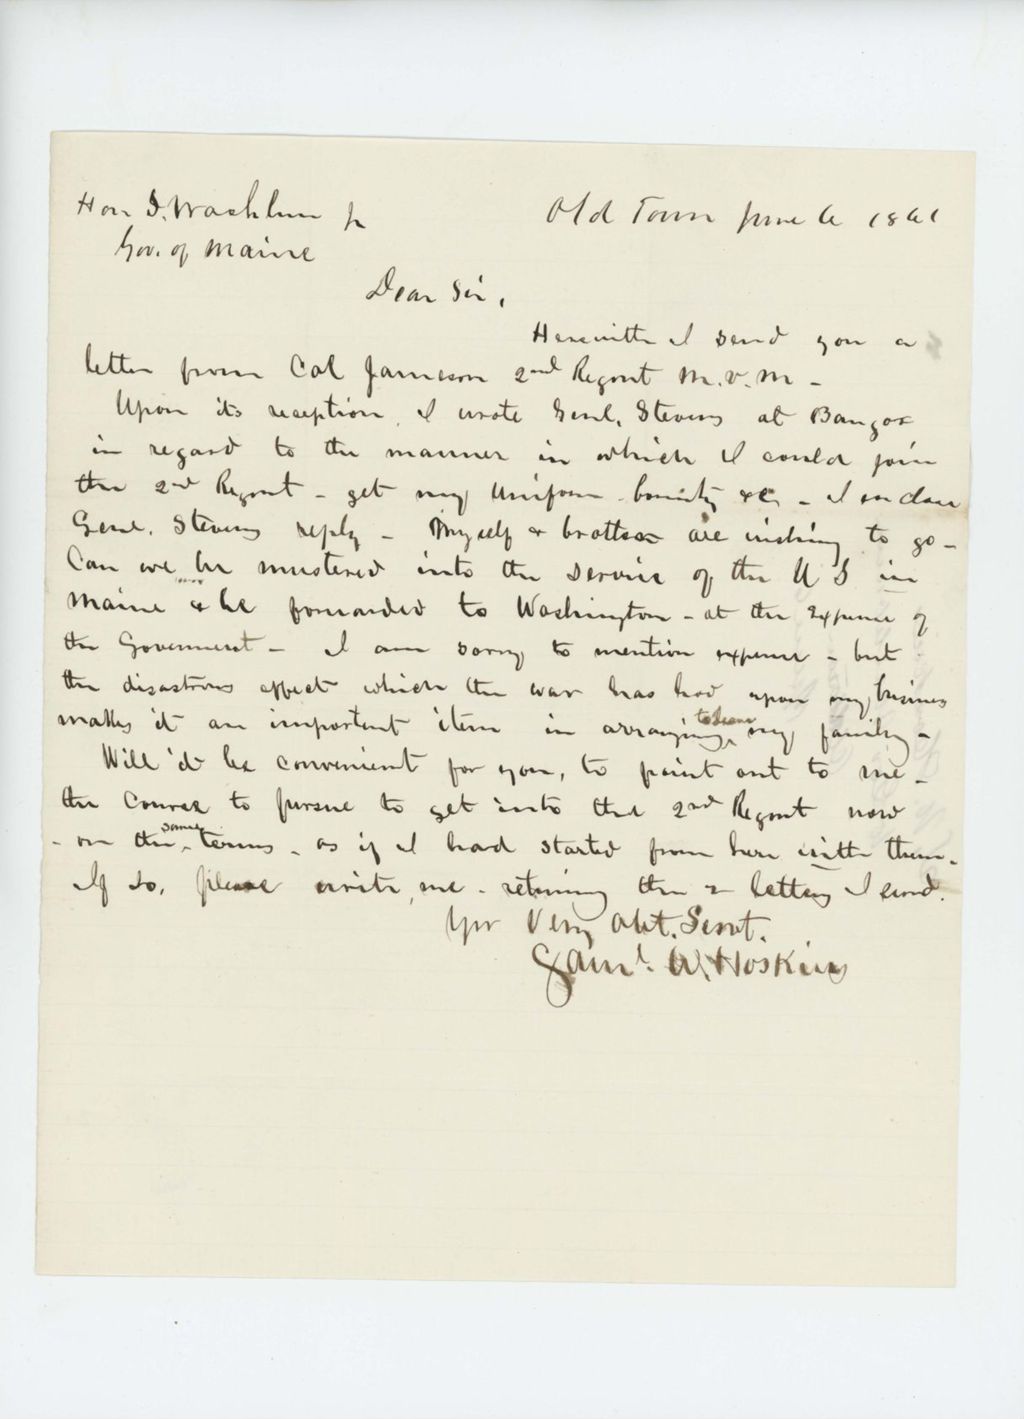 Hon I. Washburn Jr
Old Town June 6 1861
Gov. of Maine
Dear Sir,
Herewith I send you a
letter from Col Jameson 2nd Regmt M.V.M -
Upon its reception, I wrote Genl. Stevens at Bangor
in regard to the manner in which I could join
the 2nd Regmt - get my Uniform - bounty &c - I enclose
Genl. Stevens reply - Myself & brother are wishing to go -
Can we be mustered into the service of the U S in
Maine now & be forwarded to Washington - at the expense of
the Government - I am sorry to mention expense - but
the disastrous effect which the war has had upon my business
makes it an important item in arranging to leave my family -
Will it be convenient for you, to point out to me -
the course to pursue to get into the 2nd Regmt now
- on the same terms - as if I had started from here with them -
If so, please write me - returning the 2 letters I send.
Yor Very Obt. Servt.
Saml. W. Hoskins